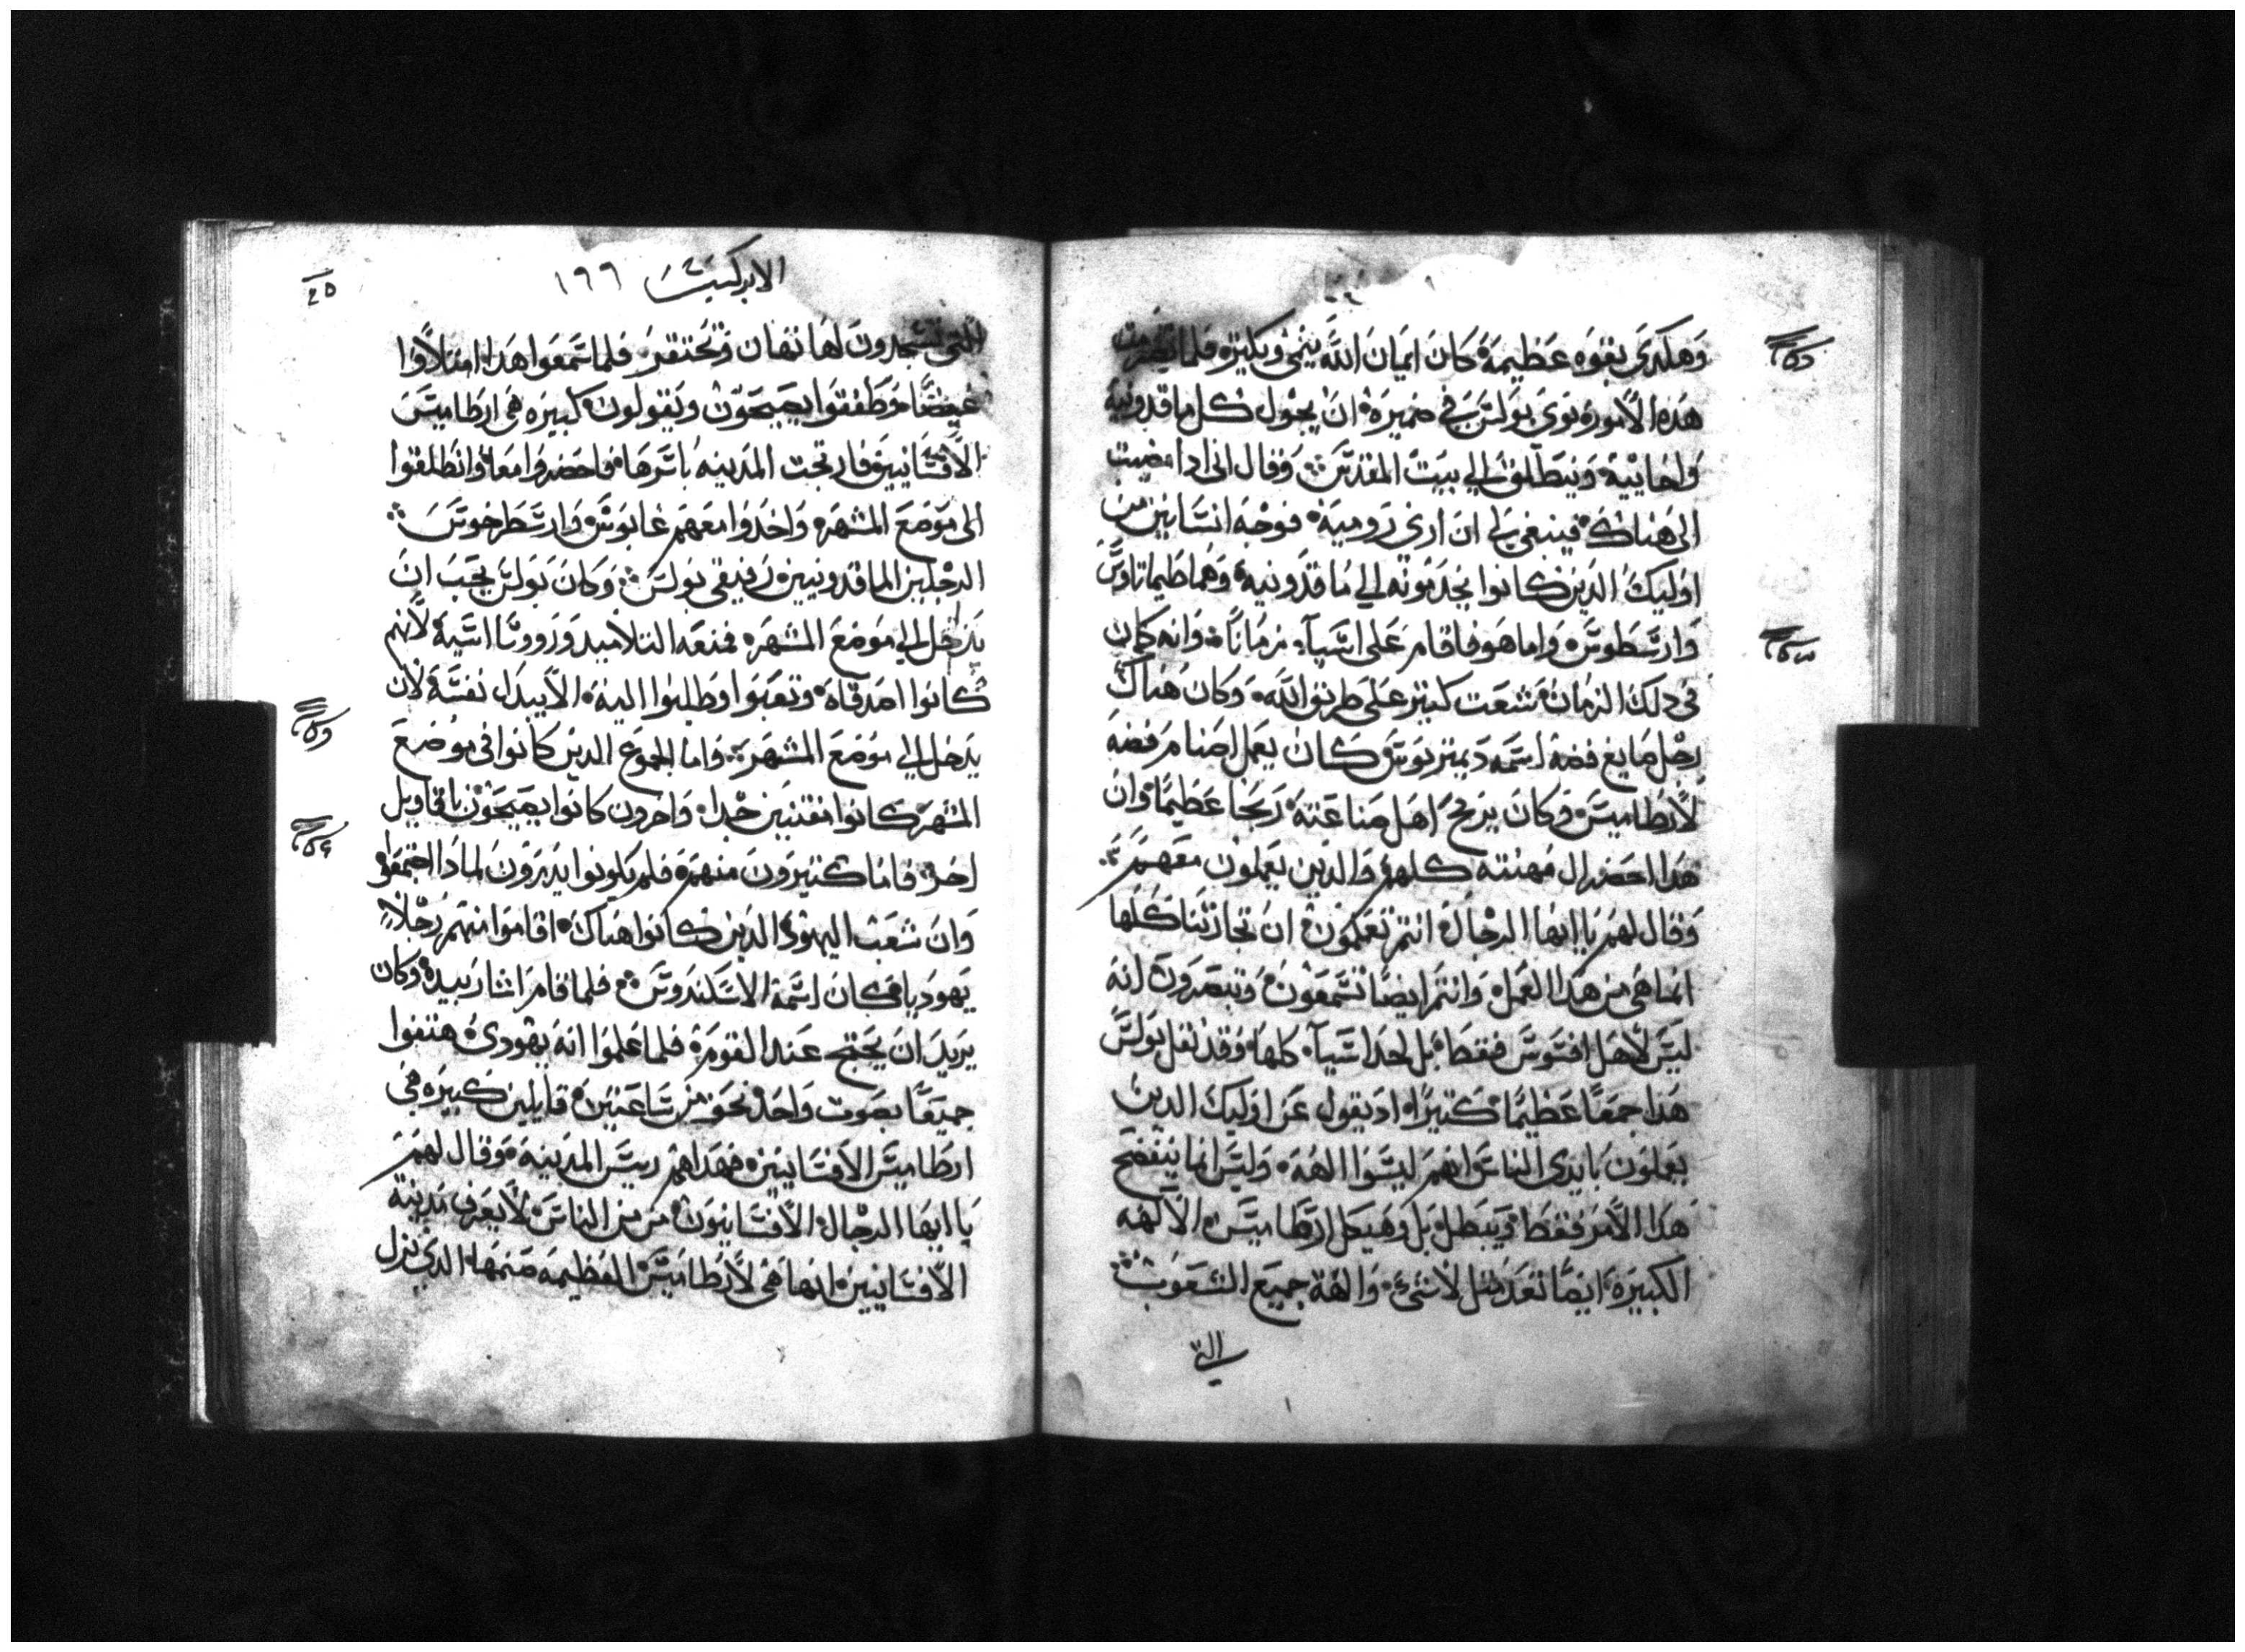 وهكدى بقوه عظيمة كان ايمان الله ينمى ويكتره فلما
هده الامور نوى بولس في ضميره ان يجول كل ماقدونية
واخاييه وينطلق الي بيت المقدس وقال انى ادا مضيت
الى هناك فينبغي لي ان ارى رومية فوجه انسانين من
اوليك الدين كانوا يخدمونه الي ماقدونيه وهما طيماتاوس
وارسطوس واما هو فاقام على اسيا زمانا وانه كان
في دلك الزمان شعت كتير على طريق الله وكان هناك
رجل صايغ فضة اسمه ديمتريوس كان يعمل اصنام فضه
لارطاميس وكان يربح اهل صناعته ربحا عظيما وان
هدا احضر ال مهنته كلهم والدين يعملون معهم
وقال لهم يا ايها الرجال انتم تعلمون ان تجارتنا كلها
انما هي من هدا العمل وانتم ايضا تسمعون وتبصرون انه
ليس لاهل افسوس فقط بل لحد اسيا كلها وقد نقل بولس
هدا جمعا عظيما كتيرا اد يقول عن اوليك الدين
يعملون بايدى الناس انهم ليسوا الهه وليس انما يتفضح
هدا الامر فقط ويبطل بل وهيكل ارطاميس الالهه
الكبيرة ايضا تعد متل لاشي والهة جميع الشعوب
التي
الابركسيس ١٦٦
التي يسجدون لها تهان وتحتقر فلما سمعوا هدا امتلاوا
غيضا وطفقوا يصيحون ويقولون كبيره هي ارطاميس
الافسانيين فارتجت المدينه باسرها فاحضروا معا وانطلقوا
الى موضع المشهره واخدوا معهم غايوس وارسطرخوس
الرجلين الماقدونيين رفيقي بولس وكان بولس يحب ان
يدخل الي موضع المشهره فمنعه التلاميد ورووسا اسية لانهم
كانوا اصدقاه وتعبوا وطلبوا اليه الا يبدل نفسه لان
يدخل الي موضع المشهرة واما الجموع الدين كانوا في موضع
المشهره كانوا مفتنين جدا واخرون كانوا يصيحون باقاويل
اخر فاما كتيرون منهم فلم يكونوا يدرون لمادا اجتمعوا
وان شعب اليهود الدين كانوا هناك اقاموا منهم رجلا
يهوديا كان اسمه الاسكندروس فلما قام اشار بيده وكان
يريد ان يحتج عند القوم فلما علموا انه يهودى هتفوا
جميعا بصوت واحد نحو من ساعتين قايلين كبيره هي
ارطاميس الافسانيين فهداهم ريس المدينة وقال لهم
يا ايها الرجال الافسانيون من من الناس لا يعرف مدينة
الافسانيين انها هي لارطاميس العظيمه صنمها الدي نزل